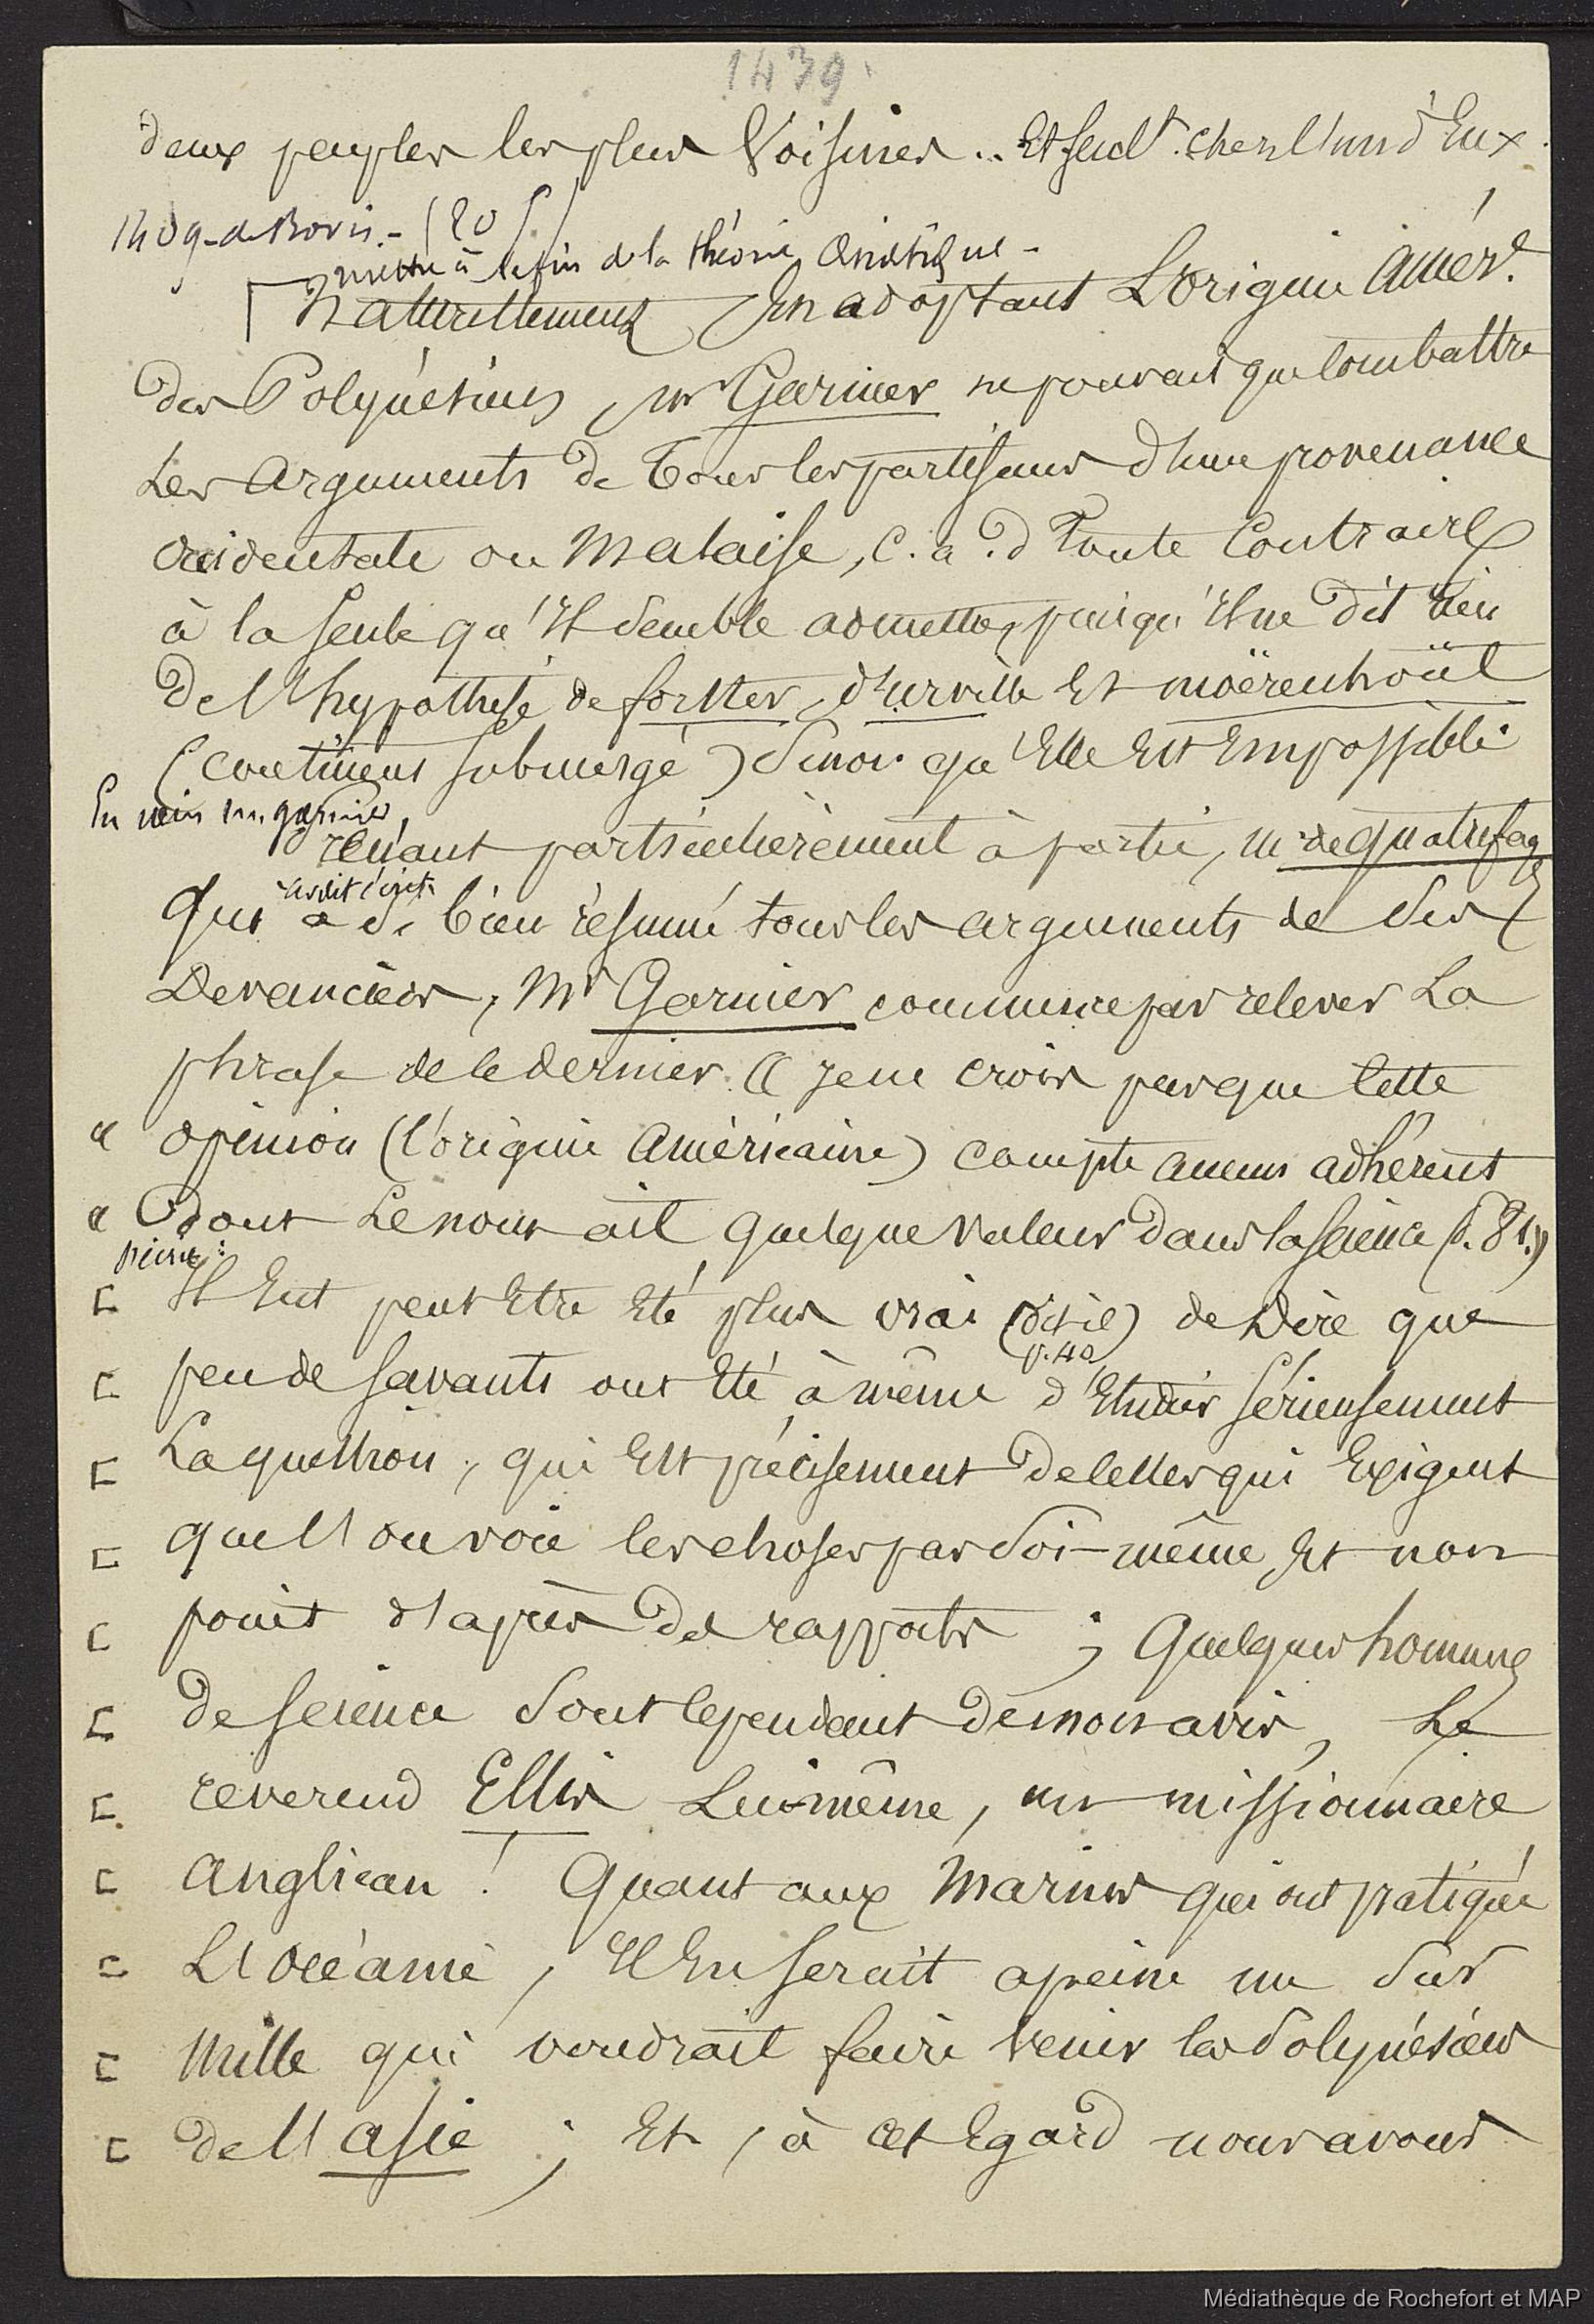 1439
deux peuples les plus Voisines .. Et seul.t chez l'un d'Eux.
1409 - de Bovis. - (20
mettre à la fin de la théorie asiatique -
Naturellement En adoptant L'origine Amér.e
des Polynésiens, mr Garnier ne pouvait que Combattre
Les Arguments de Tous les partisans d'une provenance
occidentale ou Malaise, c. a. d Toute Contraire
à la seule qu'il semble admettre, puisqu'il ne Dit rien
De l'hypothèse de forster, d'urville Et moërenhoüt
(continent submergé) sinon qu'Elle Est Impossible
En vain mr garnier,
prenant particulièrement à partie, m. de quatrefages
Qui a si bien résumé tous les arguments de ses
Devanciers, Mr Garnier commence par relever La
phrase de ce dernier. « Je ne crois pas que Cette
« opinion (l'origine Américaine) compte aucun adhérent
« dont Le nom ait quelque valeur dans la science (p. 81.»
Il Eut peut Etre Eté plus vrai (dit-il) de Dire que
p. 40
peu de savants ont Eté à même d'Etudier sérieusement
La question, qui Est précisement De celles qui Exigent
que l'on voie les choses par soi-même, Et non
point d'après De rapports ; Quelques hommes
De science sont Cependant de mon avis, Le
reverend Ellis Lui-même, un missionnaire
Anglican ! Quant aux Marins qui ont pratiqué
L'océanie, Il En serait a peine un sur
Mille qui voudrait faire venir les Polynésiens
de l'asie ; Et, à cet Egard nous avons
Médiathèque de Rochefort et MAP